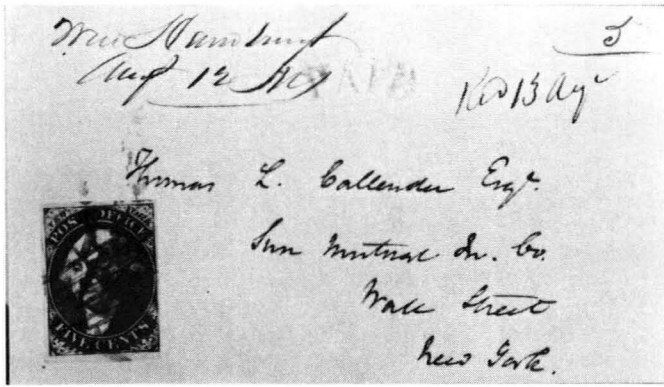 New
Aug 12
5
PAID
13 Aug
Thomas L. Callender Esqr.
Sun Mutual In. Co.
Wall Street
New York.
POST OFFICE
FIVE CENTS